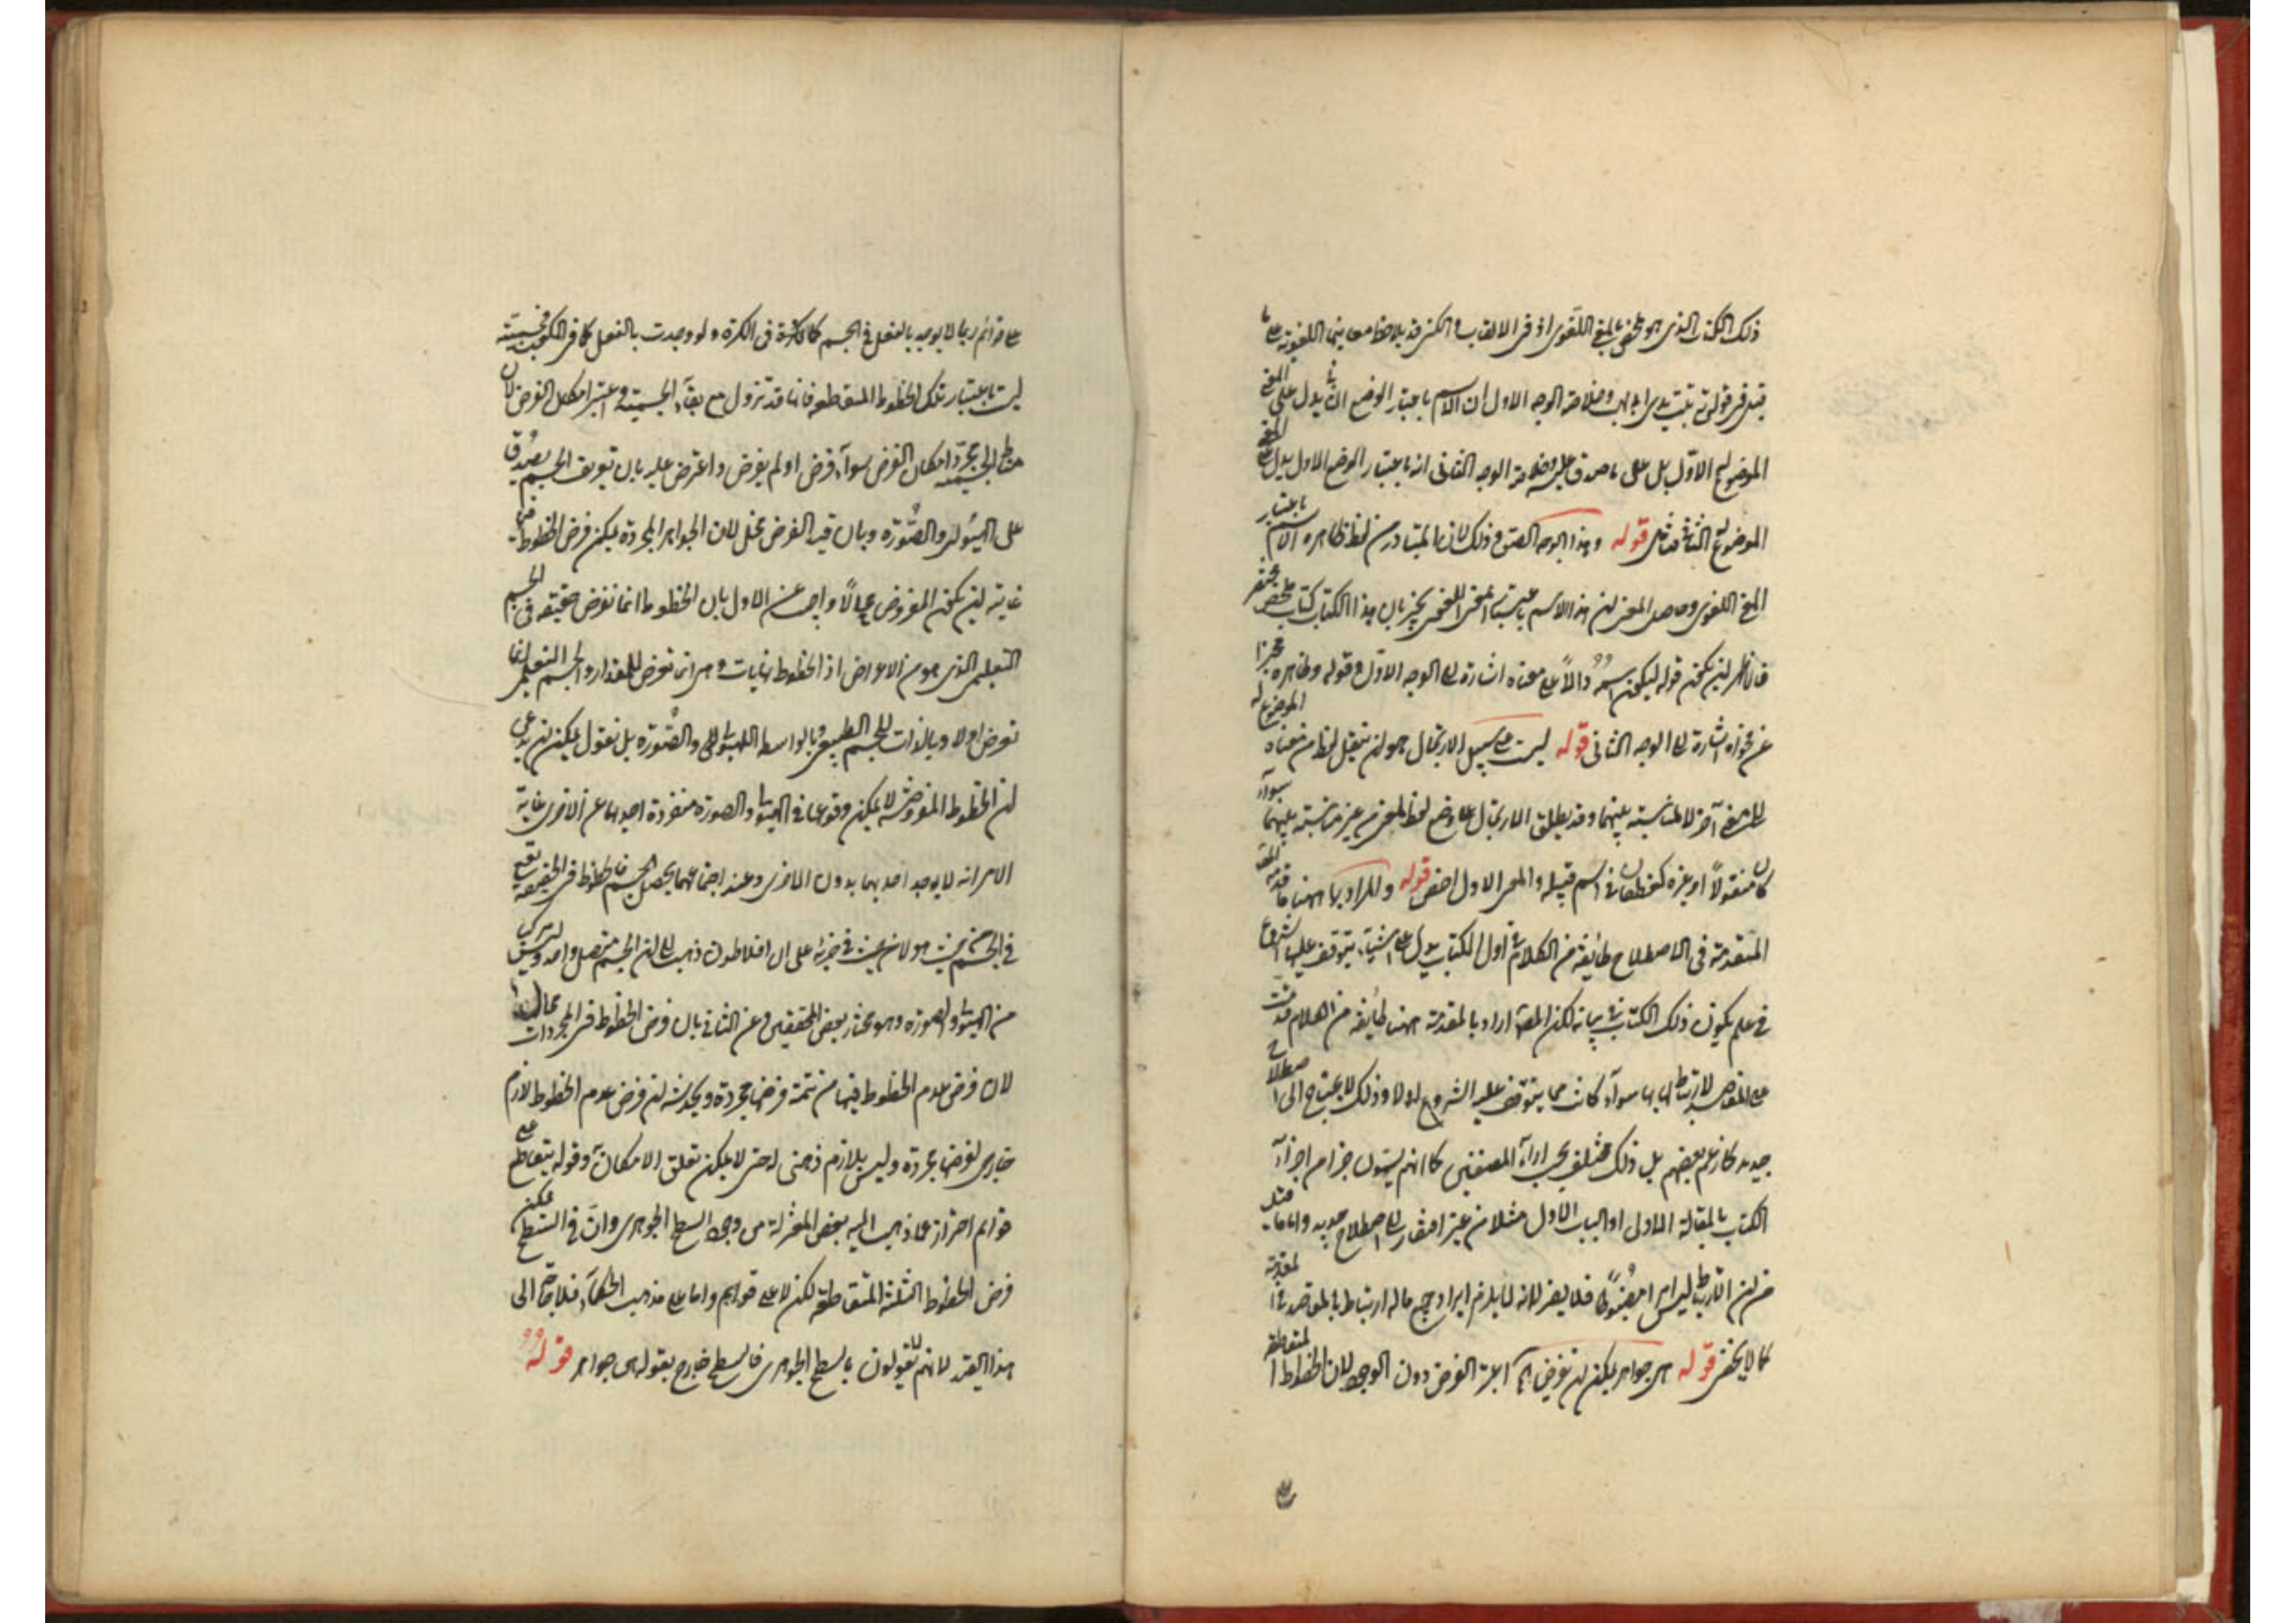 ذلك الكتاب الذى هو ملخص بالمعنى اللغوى اذ فى الالقاب والكنى قد يلاحظ معانيها اللغوية على ما
قيل فى قوله تع تبت يدا ابى لهب وخلاصة الوجه الاول ان الاسم باعتبار الوضع الثانى يدل على المعنى
الموضوع له الاول بل على ما صدق عليه وخلاصة الوجه الثانى انه باعتبار الوضع الاول يدل على المعنى
الموضوع له الثانى قوله وهذا الوجه الصق وذلك لان المتبادر من لفظ ظاهره الاسم باعتبار
المعنى اللغوى وحاصل المعنى ان هذا الاسم باعتبار المعنى اللغوى يخبر بان هذا الكتاب كتاب ملخص مختصر
فالاظهر ان يكون قوله ليكون اسمه دالا على معناه اشارة الى الوجه الاول وقوله وظاهره مخبرا
عن فحواه اشارة الى الوجه الثانى قوله ليست على سبيل الارتجال هو ان ينقل لفظ من معناه الموضوع له
الى معنى آخر لا لمناسبة بينهما وقد يطلق الارتجال على وضع لفظ لمعنى من غير مناسبة بينهما سواء
كان منقولا او غيره كغطفان فى اسم قبيلة والمعنى الاول اخص قوله والمراد بها ههنا
المتقدمة فى الاصطلاح طائفة من الكلام فى اول الكتاب يدل على اشياء يتوقف عليها الشروع
فى علم يكون ذلك الكتاب فى بيانه لكن المص اراد بالمقدمة ههنا طائفة من الكلام قدمت
على المقاصد لارتباط لها بها سواء كانت مما يتوقف عليه الشروع او لا وذلك لا يحتاج الى اصطلاح
جديد كما زعم بعضهم بل ذلك مختلف بحسب اراء المصنفين كما انهم يسمون جزءا من اجزاء
الكتاب بالمقالة الاولى او الباب الاول مثلا من غير افتقار الى اصطلاح جديد واما ما قيل
من ان الارتباط ليس امرا مضبوطا فلا يضر لانه لا يلزم ايراد جميع ما له ارتباط بالمقاصد فى المقدمة
كما لا يخفى قوله هى جواهر يمكن ان تفرض آه اعتبر الفرض دون الوجود لان الخطوط المتقاطعة
على قوائم ربما لا يوجد بالفعل فى الجسم كما فى الكرة ولو وجدت بالفعل كما فى المكعب فجسميته
ليست باعتبار تلك الخطوط المتقاطعة فانها قد تزول مع بقاء الجسمية واعتبر امكان الفرض لان
مناط الجسمية مجرد امكان الفرض سواء فرض او لم يفرض واعترض عليه بان تعريف الجسم يصدق
على الهيولى والصورة وبان قيد الفرض مخل لان الجواهر المجردة يمكن فرض الخطوط فيها
غايته ان يكون المفروض محالا واجيب عن الاول بان الخطوط انما تفرض حقيقة فى الجسم
التعليمى الذى هو من الاعراض اذ الخطوط نهايات وهى انما تعرض للمقدار والجسم التعليمى انما
تعرض اولا وبالذات للجسم الطبيعى وبالواسطة للهيولى والصورة بل نقول يمكن ان يدعى
ان الخطوط المفروضة لا يمكن وقوعها فى الهيولى والصورة منفردة احديهما عن الاخرى غاية
الامر انه لا يوجد احديهما بدون الاخرى وعند اجتماعهما يحصل الجسم فالخطوط فى الحقيقة تقع
فى الجسم من حيث هو لا من حيث فى جزئه على ان افلاطون ذهب الى ان الجسم متصل واحد وليس بمركب
من الهيولى والصورة وهو مختار بعض المحققين وعن الثانى بان فرض الخطوط فى المجردات محال
لان فرض عدم الخطوط فيها من تتمة فرضها مجردة ويخدشه ان فرض عدم الخطوط لازم
خارجى لفرضها مجردة وليس بلازم ذهنى حتى لا يمكن تعلق الامكان وقوله يتقاطع على
قوائم احتراز عما ذهب اليه بعض المعتزلة من وجود السطح الجوهرى وان فى السطح يمكن
فرض الخطوط الثلثة المتقاطعة لكن لا على قوائم واما على مذهب الحكماء فلا حاجة الى
هذا القيد لانهم لا يقولون بالسطح الجوهرى فالسطح خارج بقوله هى جواهر قوله